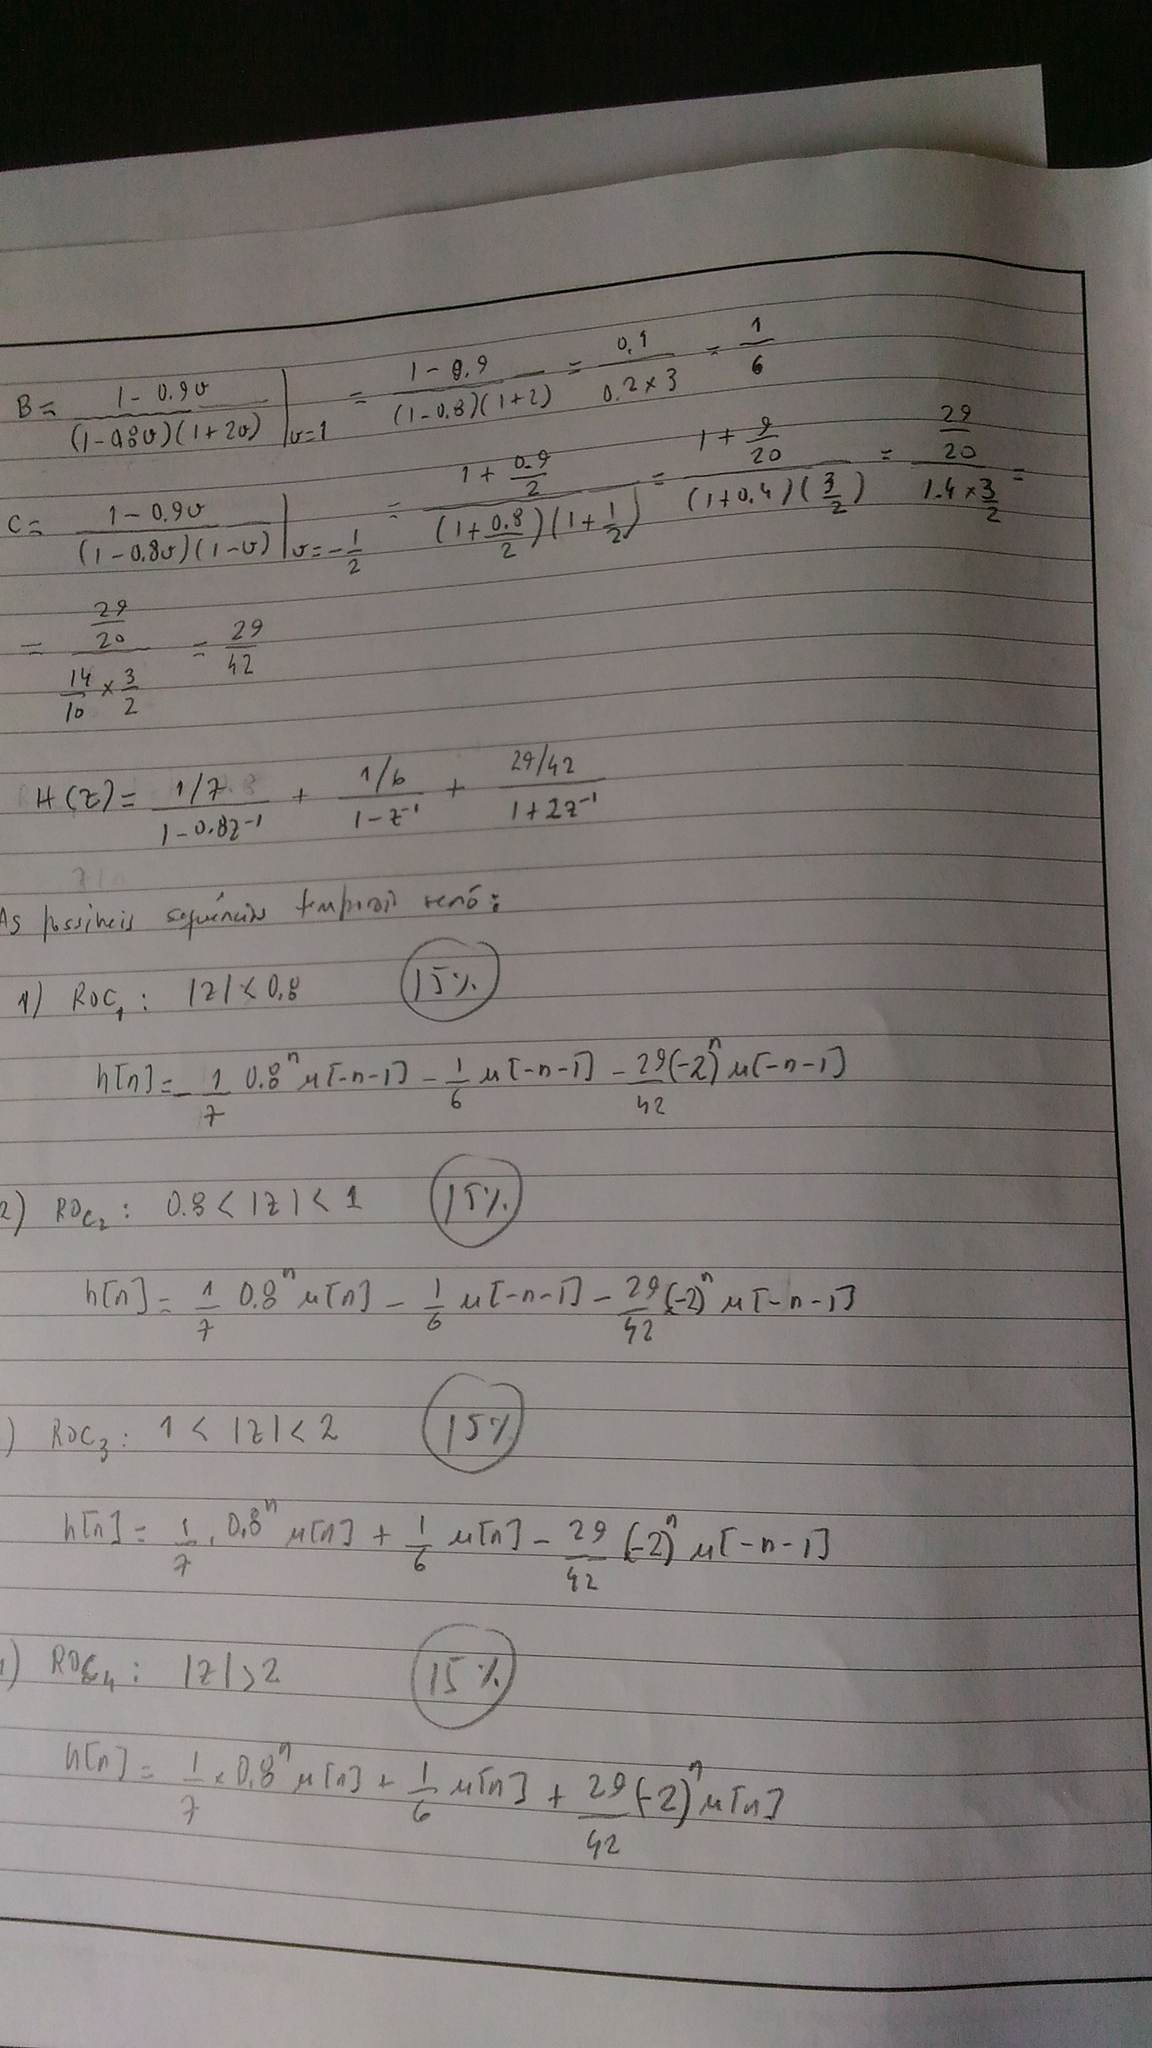 B = (1-0.9v)/((1-0.8v)(1+2v)) |v=1 = (1-0.9)/((1-0.8)(1+2)) = 0.1/(0.2×3) = 1/6
C = (1-0.9v)/((1-0.8v)(1-v)) |v=-1/2 = (1+0.9/2)/((1+0.8/2)(1+1/2)) = (1+9/20)/((1+0.4)(3/2)) = (29/20)/(1.4×3/2) =
= (29/20)/(14/10×3/2) = 29/42
H(z) = (1/7)/(1-0.8z⁻¹) + (1/6)/(1-z⁻¹) + (29/42)/(1+2z⁻¹)
As possíveis sequências temporais serão:
1) ROC₁: |z| < 0.8 15%
h[n] = -1/7 0.8ⁿ u[-n-1] - 1/6 u[-n-1] - 29/42 (-2)ⁿ u[-n-1]
2) ROC₂: 0.8 < |z| < 1 15%
h[n] = 1/7 0.8ⁿ u[n] - 1/6 u[-n-1] - 29/42 (-2)ⁿ u[-n-1]
) ROC₃: 1 < |z| < 2 15%
h[n] = 1/7 . 0.8ⁿ u[n] + 1/6 u[n] - 29/42 (-2)ⁿ u[-n-1]
) ROC₄: |z| > 2 15%
h[n] = 1/7 × 0.8ⁿ u[n] + 1/6 u[n] + 29/42 (-2)ⁿ u[n]